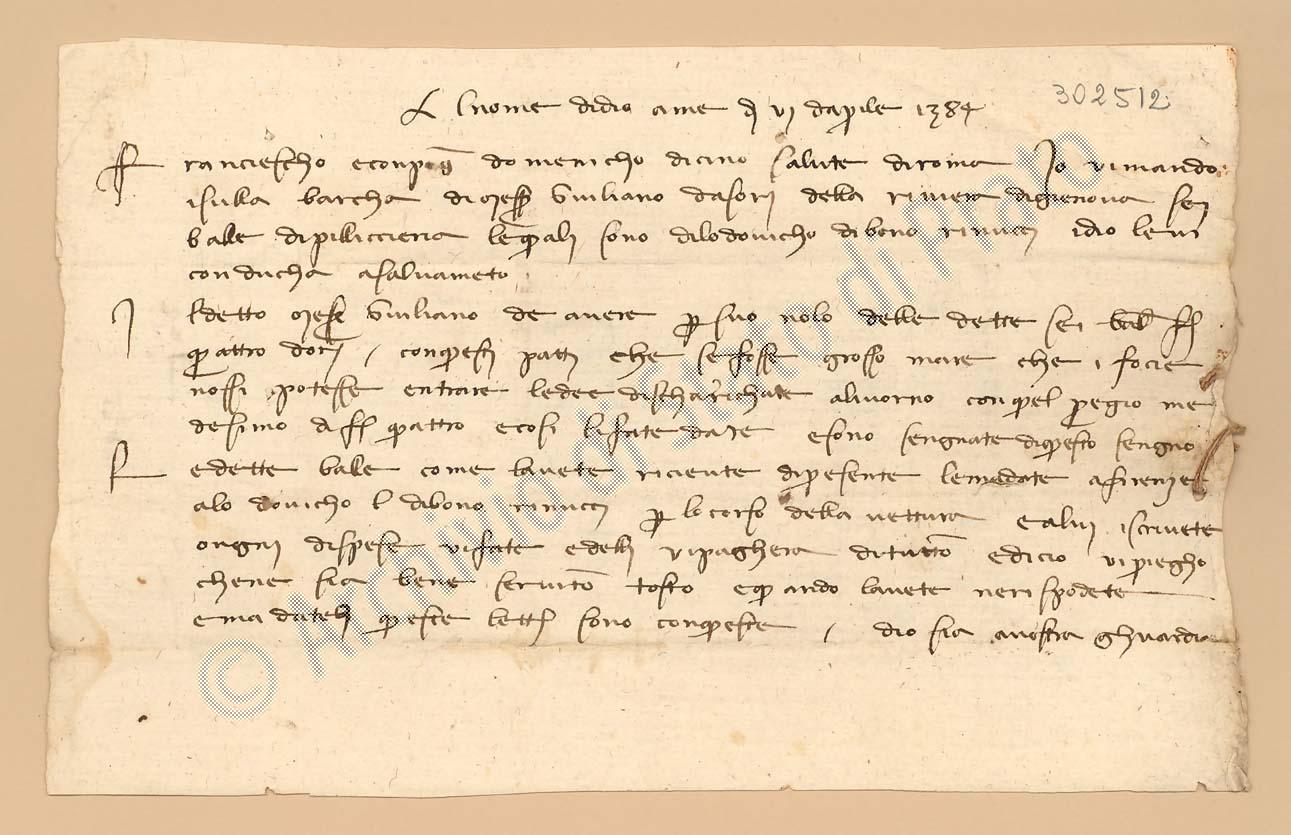 Al nome di dio ame dì vj d'aprile 1384
302512
Franciescho e conpa domenicho di cino salute di roma Io vi mando
i sulla barcha di mess Giuliano da sori della riviera di gienova sei
balle di pilliccieria le quali sono di lodovicho di bono rinucci idio le vi
conducha a salvameto
Il detto mess Giuliano de avere per suo nolo delle dette sei ball ff
quattro d'or / con questi patti che se fosse grosso mare che i focie
nossi potesse entrare le dee discharichate a livorno con quel pregio me
desimo di ff quattro e cosi li fate dare e sono sengnate di questo sengno
Le dette balle come l'avete riciente di presente le madate a firenze
a lodovicho di bono rinucci per lo corso della vettura e a lui iscrivete
ongni dispese vi fate ed elli vi paghera di tutto e di cio vi priegho
che ne sia bene servito tosto e quando l'avete ne rispodete
e madateli queste lett sono con queste / dio sia a vostra ghuardia
© Archivio di Stato di Prato